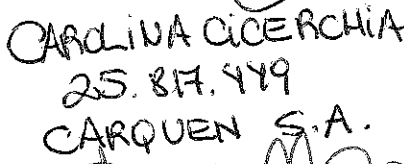 CAROLINA CICERCHIA
25.817.449
CARQUEN S.A.